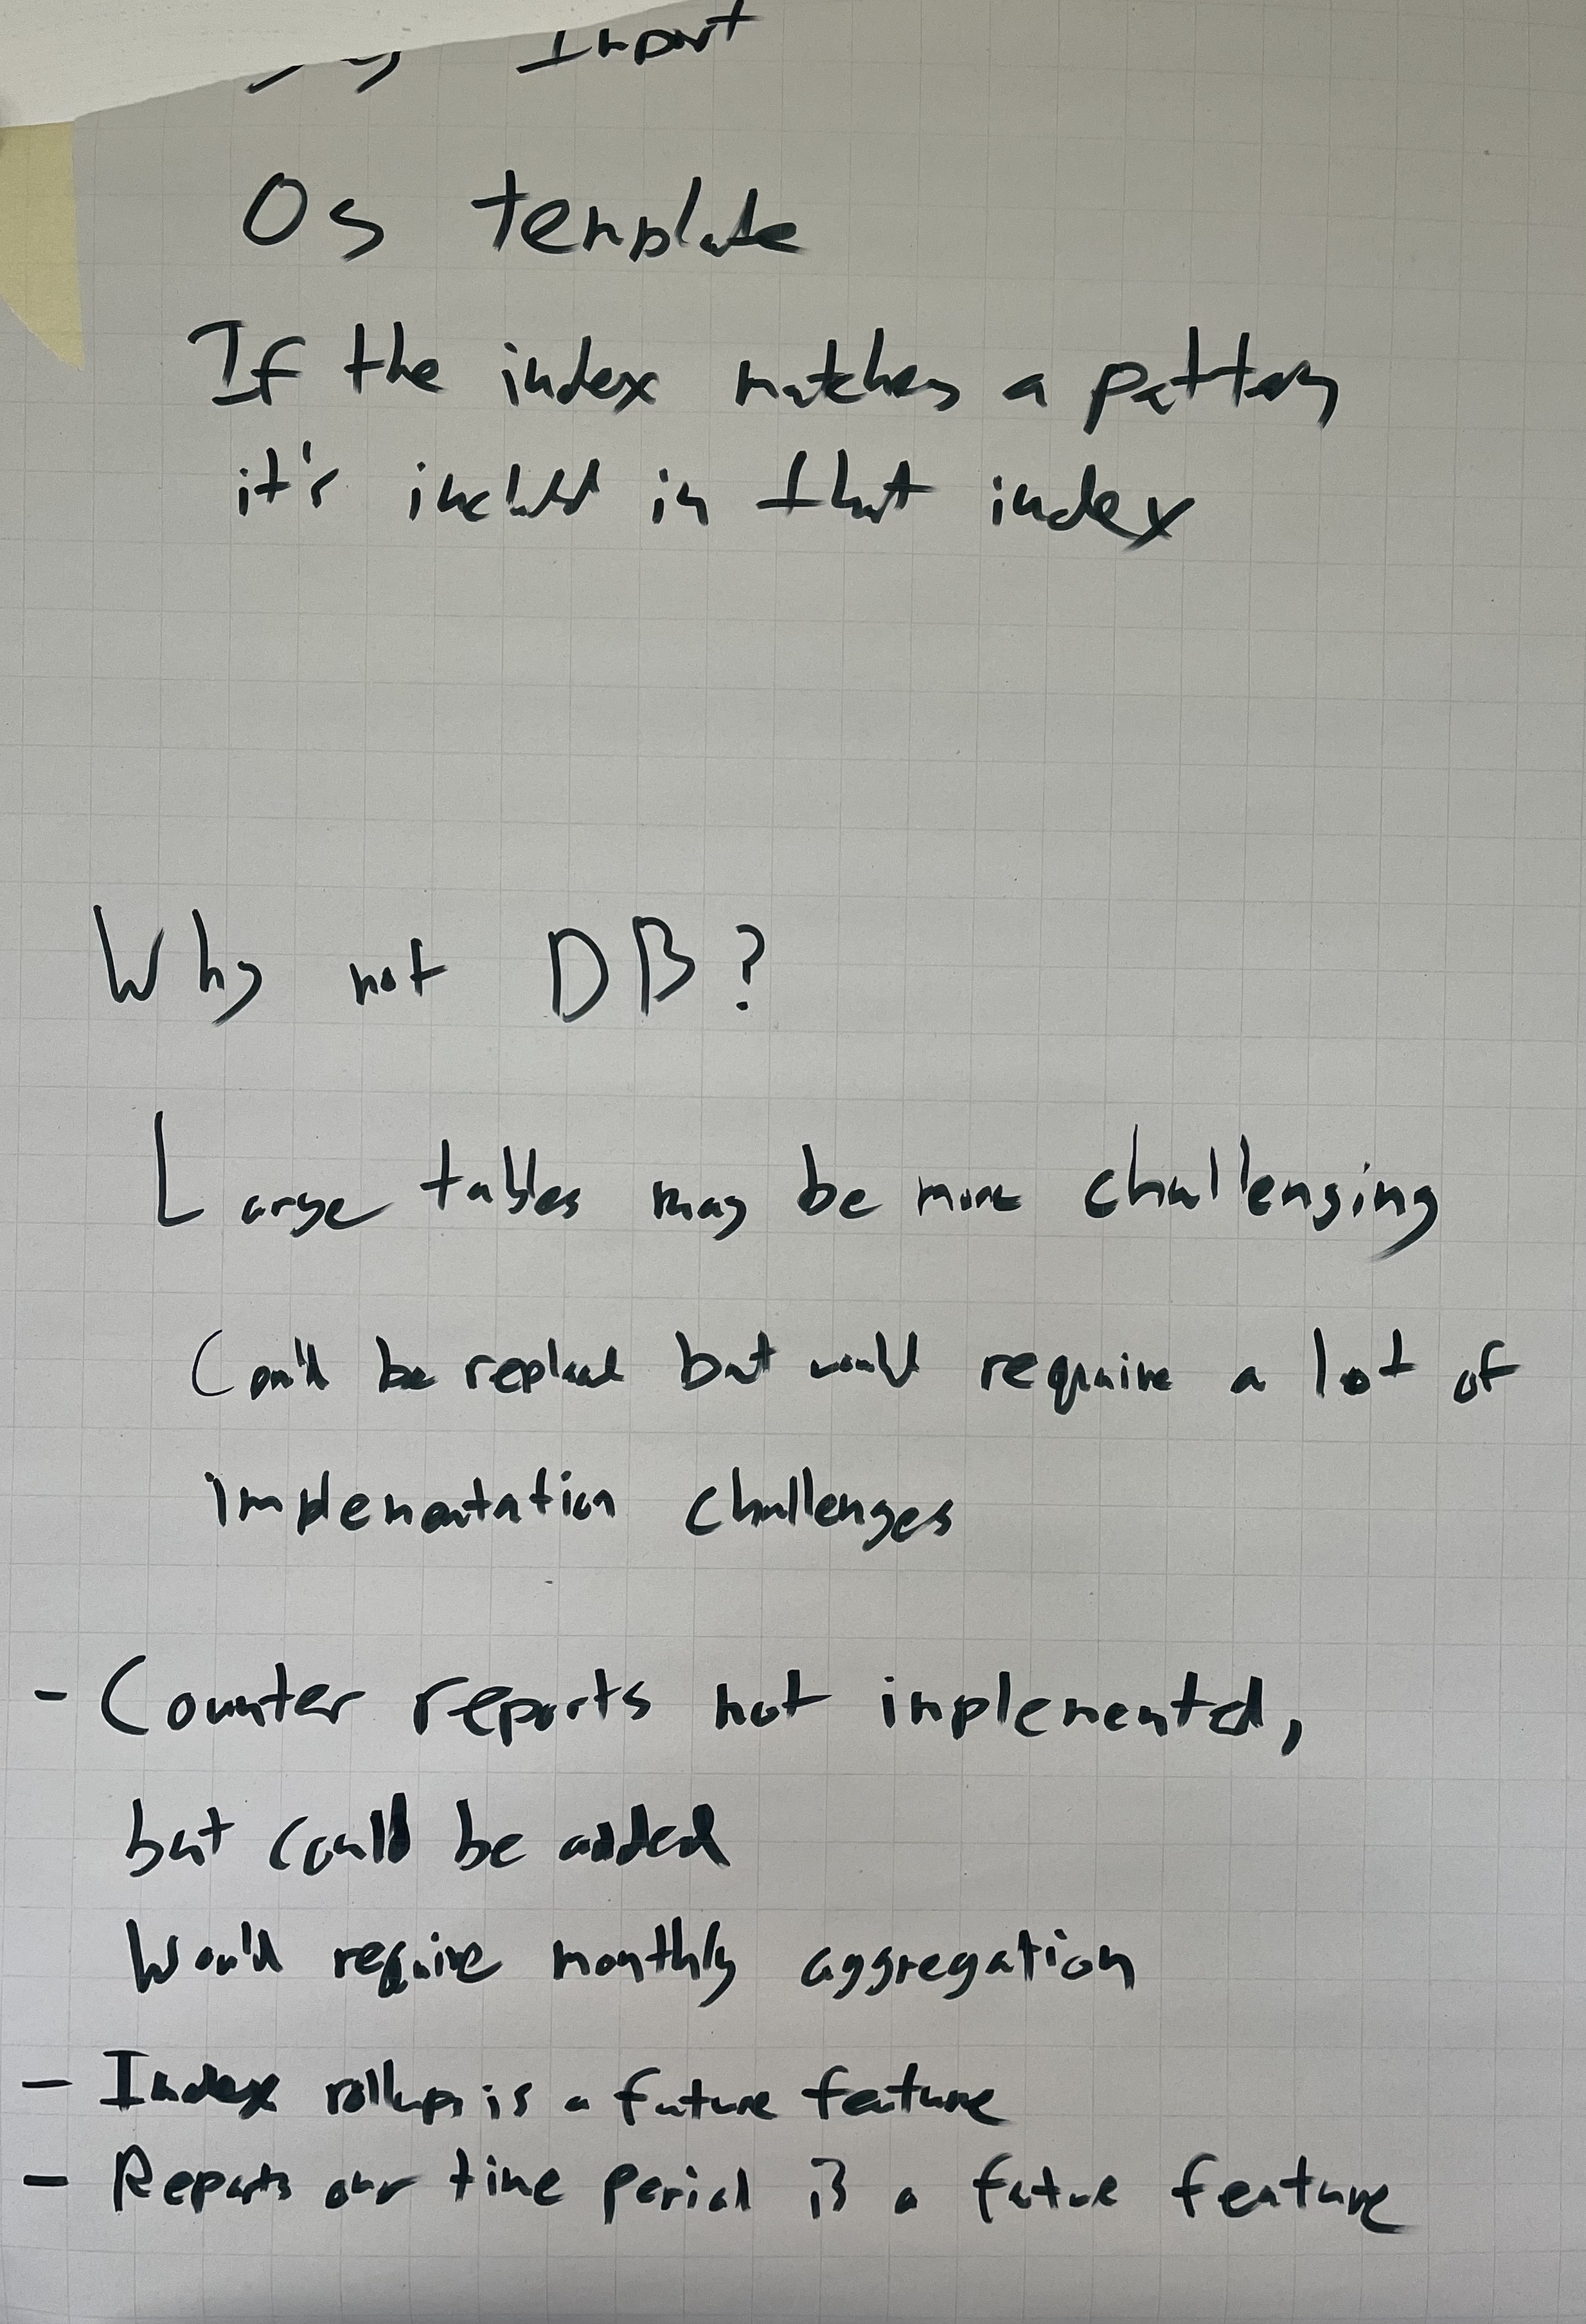 Import
OS template
If the index matches a pattern
it's included in that index
Why not DB?
Large tables may be more challenging
Could be replaced but would require a lot of
implementation challenges
- Counter reports not implemented,
but could be added
Would require monthly aggregation
- Index rollups is a future feature
- Reports over time period is a future feature